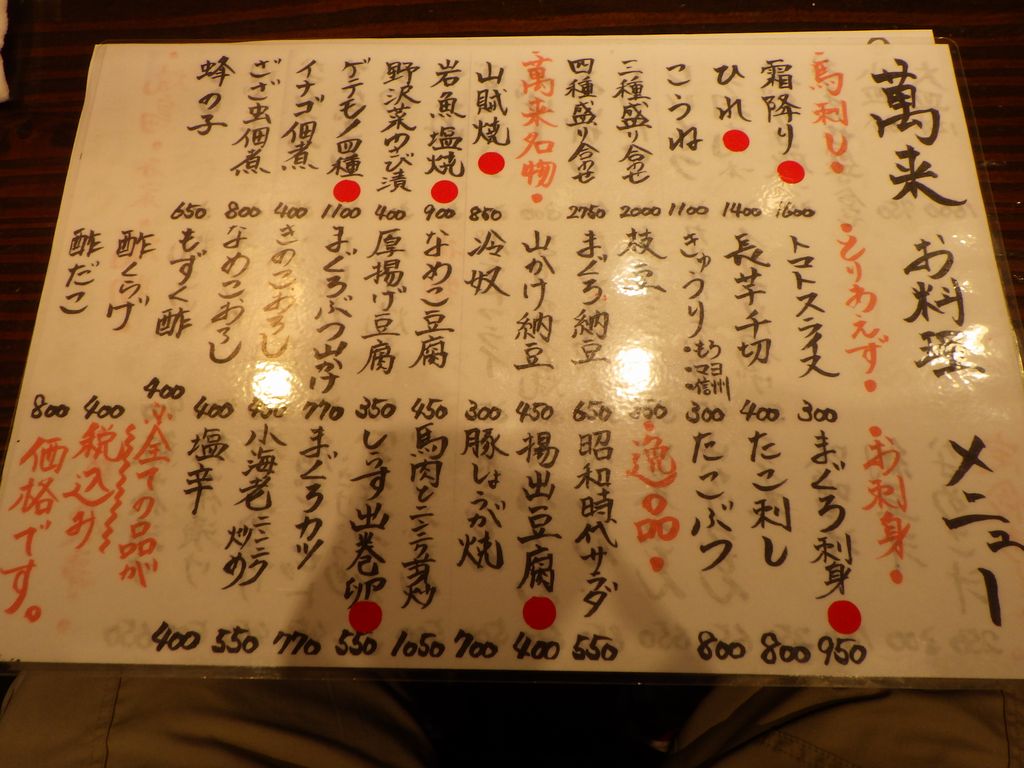 萬来 お料理 メニュー
馬刺し
霜降り 1600
ひれ 1400
こうね 1100
三種盛り合わせ 2000
四種盛り合わせ 2750
萬来名物
山賊焼 850
岩魚塩焼 900
野沢菜わさび漬 400
ゲテモノ四種 1100
イナゴ佃煮 400
ざざ虫佃煮 800
蜂の子 650
とりあえず
トマトスライス 300
長芋千切 400
きゅうり ・もろ ・マヨ ・信州 300
枝豆 350
まぐろ納豆 650
山かけ納豆 450
冷奴 300
なめこ豆腐 450
厚揚げ豆腐 350
まぐろぶつ山かけ 770
きのこおろし
なめこおろし 400
もずく酢 400
酢くらげ 400
酢だこ 800
お刺身
まぐろ刺身 950
たこ刺し 800
たこぶつ 800
逸品
昭和時代サラダ 550
揚出豆腐 400
豚しょうが焼 700
馬肉とニンニク芽炒 1050
しらす出巻卵 550
まぐろカツ 770
小海老ニンニク炒め 550
塩辛 400
※全ての品が
税込み
価格です。